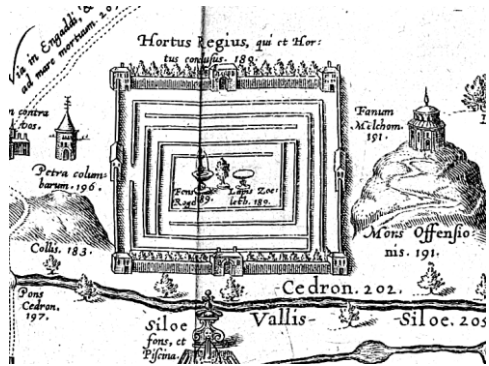 ia in Engaddi, &
ad mare mortuum. 20
Hortus Regius, qui et Hor-
tus conclusus. 189.
n contra
Petra colum-
barum. 196.
Fanum
Melchom.
191.
Fons
Rogel
89.
Lapis Zoe-
leth. 189.
Collis. 183.
Mons Offensio-
nis. 191.
Pons
Cedron.
197.
Cedron. 202.
Siloe
fons, et
Piscina.
Vallis - Siloe. 205